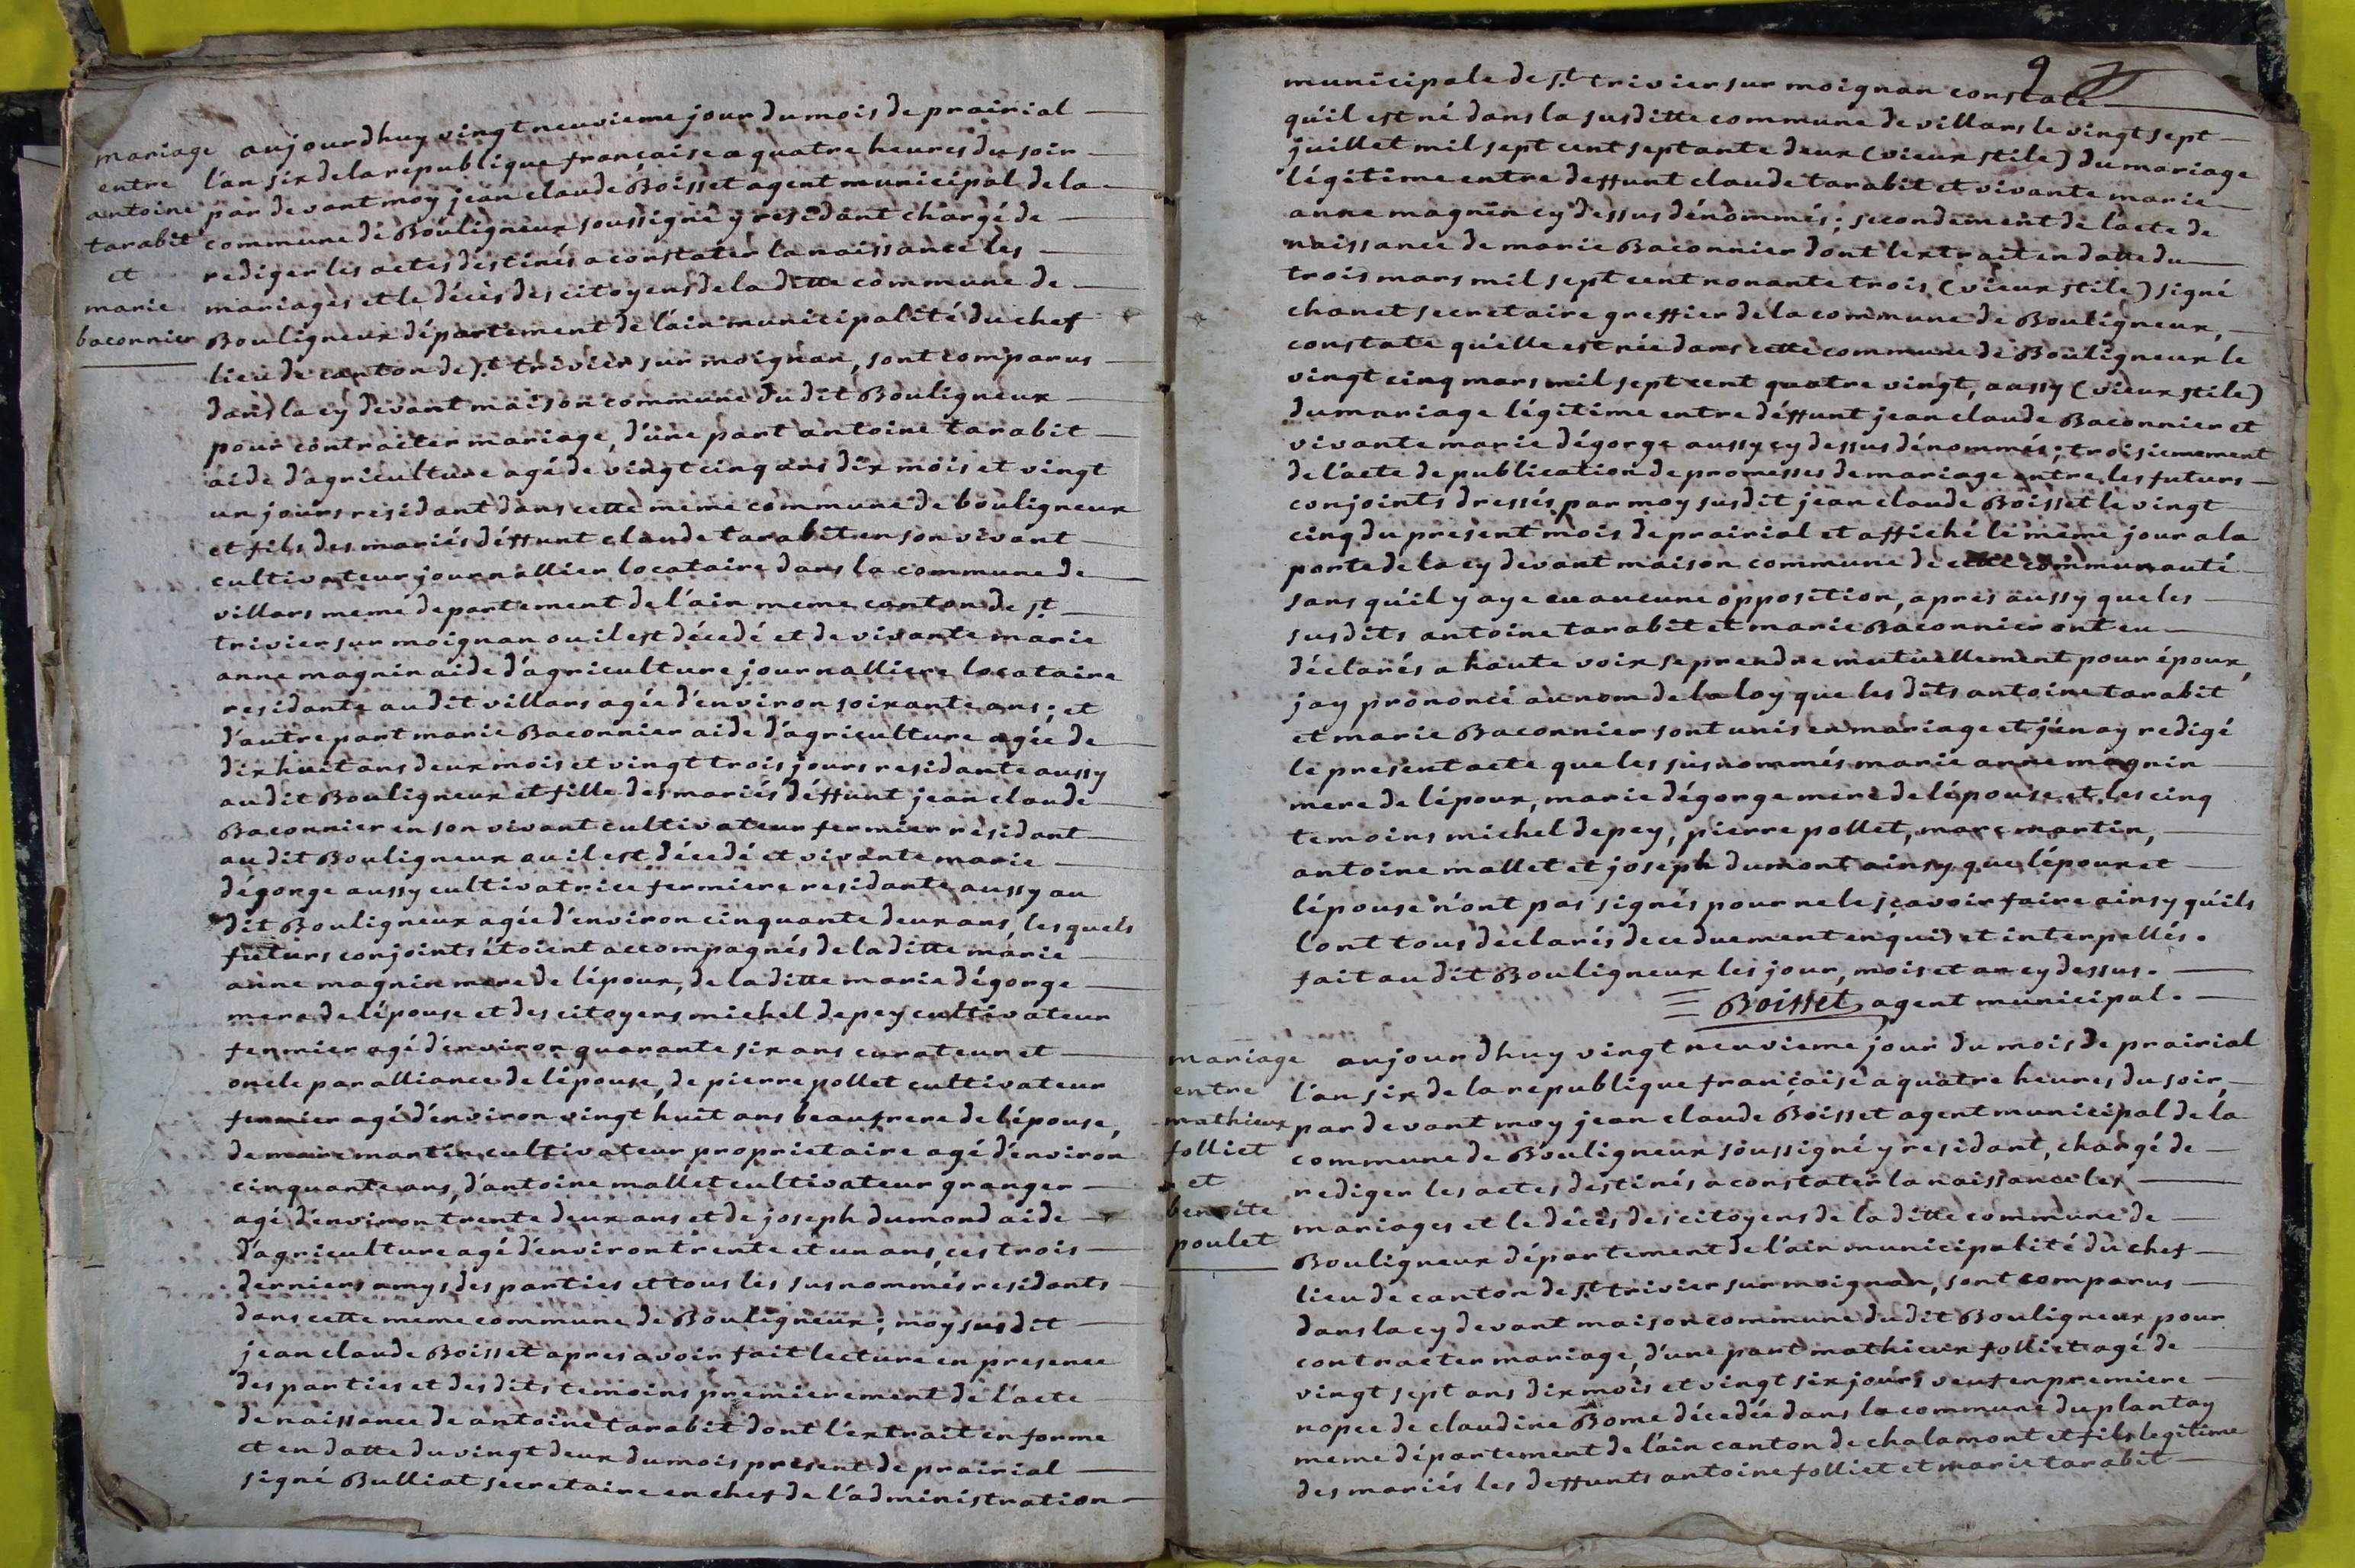 mariage
entre
antoine
tarabit
et
marie
baconnier
aujourdhuy vingt neuvieme jour du mois de prairial
l'an six de la republique française a quatre heures du soir
par devant moy jean claude Boisset agent municipal de la
commune de Bouligneux soussigné y residant chargé de
rediger les actes destinés a constater la naissance les
mariages et le décès des citoyens de la ditte commune de
Bouligneux département de l'ain municipalité du chef
lieu de canton de st trivier sur moignan, sont comparus
dans la cy devant maison commune du dit Bouligneux
pour contracter mariage, d'une part antoine tarabit
aide d'agriculture agé de vingt cinq ans dix mois et vingt
un jours residant dans cette meme commune de bouligneux
et fils des mariés déffunt claude tarabit en son vivant
cultivateur journallier locataire dans la commune de
villars meme departement de l'ain meme canton de st
trivier sur moignan ou il est décedé et de vivante marie
anne magnin aide d'agriculture journalliere locataire
residante au dit villars agée d'environ soixante ans; et
d'autre part marie Baconnier aide d'agriculture agée de
dix huit ans deux mois et vingt trois jours residante aussy
au dit Bouligneux et fille des mariés déffunt jean claude
Baconnier en son vivant cultivateur fermier residant
au dit Bouligneux ou il est décedé et vivante marie
dégorge aussy cultivatrice fermiere residante aussy au
dit Bouligneux agée d'environ cinquante deux ans, les quels
futurs conjoints étoient accompagnés de la ditte marie
anne magnin mere de l'époux, de la ditte marie dégorge
mere de l'épouse et des citoyens michel depey cultivateur
fermier agé d'environ quarante six ans curateur et
oncle par alliance de l'épouse, de pierre pollet cultivateur
fermier agé d'environ vingt huit ans beaufrere de l'épouse,
de marc martin cultivateur proprietaire agé d'environ
cinquante ans, d'antoine mallet cultivateur granger
agé d'environ trente deux ans et de joseph dumond aide
d'agriculture agé d'environ trente et un ans, ces trois
derniers amys des parties et tous les susnommés residants
dans cette meme commune de Bouligneux; moy susdit
jean claude Boisset apres avoir fait lecture en presence
des parties et des dits temoins premierement de l'acte
de naissance de antoine tarabit dont l'extrait en forme
et en datte du vingt deux du mois present de prairial
signé Bulliat secretaire en chef de l'administration
9
municipale de st trivier sur moignan constate
qu'il est né dans la susditte commune de villars le vingt sept
juillet mil sept cent septante deux (vieux stile) du mariage
légitime entre deffunt claude tarabit et vivante marie
anne magnin cy dessus dénommés; secondement de l'acte de
naissance de marie Baconnier dont l'extrait en datte du
trois mars mil sept cent nonante trois (vieux stile) signé
chanet secretaire greffier de la commune de Bouligneux,
constate qu'elle est née dans cette commune de Bouligneux le
vingt cinq mars mil sept cent quatre vingt, aussy (vieux stile)
du mariage légitime entre déffunt jean claude Baconnier et
vivante marie dégorge aussy cy dessus dénommés; troisiemement
de l'acte de publication de promesses de mariage entre les futurs
conjoints dressés par moy susdit jean claude Boisset le vingt
cinq du present mois de prairial et affiché le meme jour a la
porte de la cy devant maison commune de cette communauté
sans qu'il y aye eu aucune opposition, apres aussy que les
susdits antoine tarabit et marie Baconnier ont eu
déclarés a haute voix se prendre mutuellement pour époux,
jay prononcé au nom de la loy que les dits antoine tarabit
et marie Baconnier sont unis en mariage et j'en ay redigé
le present acte que les susnommés marie anne magnin
mere de l'époux, marie dégorge mere de l'épouse et les cinq
temoins michel depey, pierre pollet, marc martin,
antoine mallet et joseph dumont ainsy que l'époux et
l'épouse n'ont pas signés pour ne le sçavoir faire ainsy qu'ils
l'ont tous declarés de ce duement enquis et interpellés.
fait au dit Bouligneux les jour, mois et an cy dessus.
Boisset agent municipal.
mariage
entre
mathieux
folliet
et
benoite
poulet
aujourdhuy vingt neuvieme jour du mois de prairial
l'an six de la republique française a quatre heures du soir,
par devant moy jean claude Boisset agent municipal de la
commune de Bouligneux soussigné y residant, chargé de
rediger les actes destinés a constater la naissance les
mariages et le décès des citoyens de la ditte commune de
Bouligneux département de l'ain municipalité du chef
lieu de canton de st trivier sur moignan, sont comparus
dans la cy devant maison commune du dit Bouligneux pour
contracter mariage, d'une part mathieux folliet agé de
vingt sept ans dix mois et vingt six jours veuf en premiere
nopce de claudine Bome décedée dans la commune du plantay
meme département de l'ain canton de chalamont et fils legitime
des mariés les deffunts antoine folliet et marie tarabit